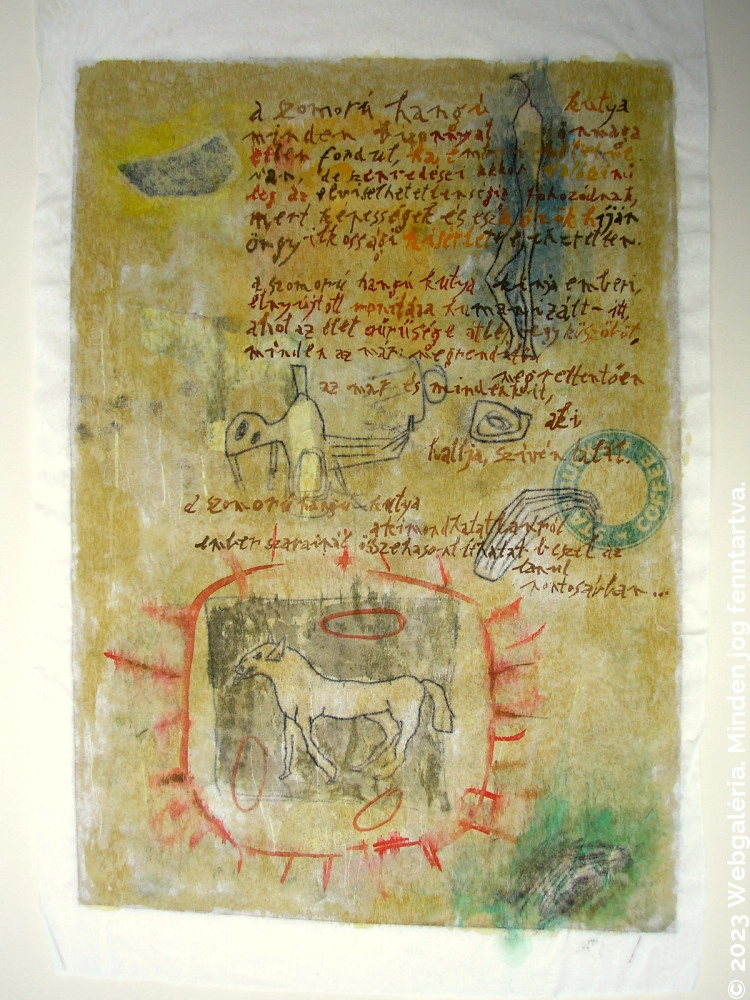 a szomorú hangú kutya
minden bizonnyal önmaga
ellen fordul, ha
van, de szenvedései akkor
leg az elviselhetetlenségig fokozódnak,
mert képességek és eszközök híján
öngyilkossági kísérletet
a szomorú hangú kutya kínja emberi,
elnyújtott humanizált – itt,
ahol az élet sűrűsége átlép egy küszöböt,
minden az már: megrendítő
az már és mindenkit, megrettentően
aki
hallja, szíven talál.
a szomorú hangú kutya
a kimondhatatlanról
ember szavainál összehasonlíthatat beszél az
lanul
pontosabban...
© 2023 Webgaléria. Minden jog fenntartva.